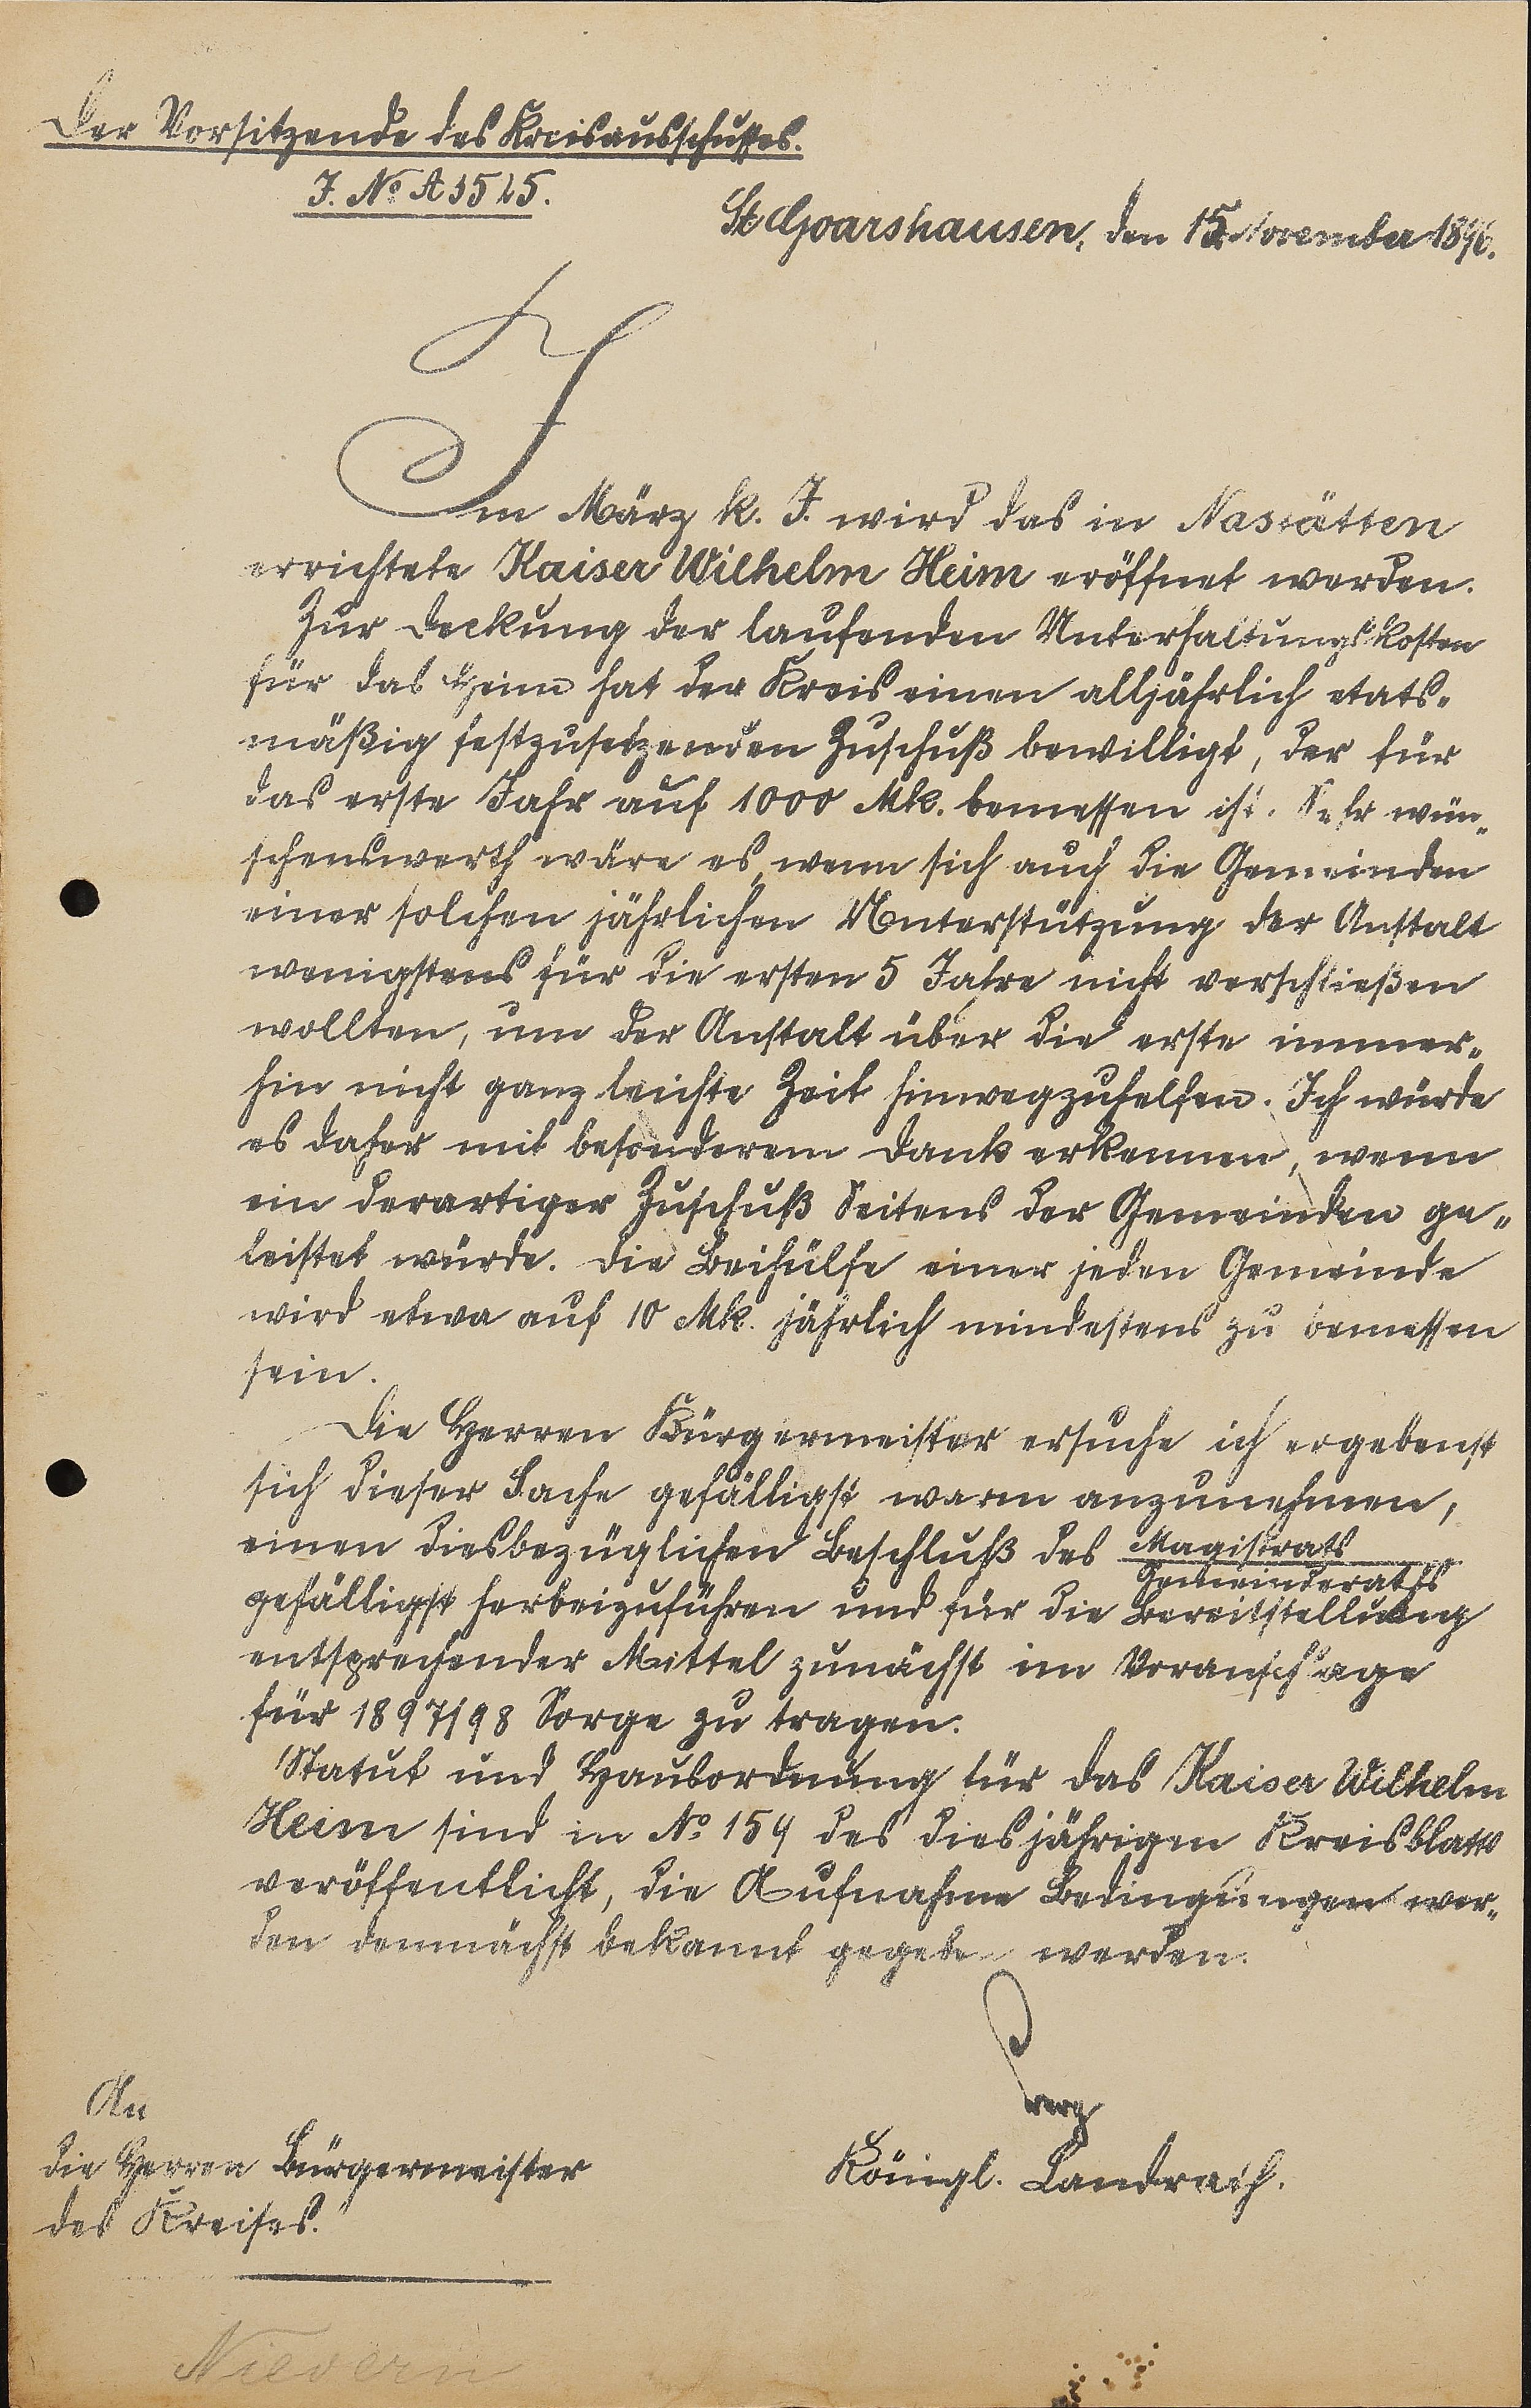 Der Vorsitzende des Kreisausschusses.
J. No A 3525.
St Goarshausen, den 15. November 1896.
Im März k. J. wird das in Nastätten
errichtete Kaiser Wilhelm Heim eröffnet werden.
Zur Deckung der laufenden Unterhaltungskosten
für das Heim hat der Kreis einen alljährlich etats-
mäßig festzusetzenden Zuschuß bewilligt, der für
das erste Jahr auf 1000 Mk. bemessen ist. Sehr wün-
schenswerth wäre es, wenn sich auch die Gemeinden
einer solchen jährlichen Unterstützung der Anstalt
wenigstens für die ersten 5 Jahre nicht verschließen
wollten, um der Anstalt über die erste immer-
hin nicht ganz leichte Zeit hinwegzuhelfen. Ich würde
es daher mit besonderem Dank erkennen, wenn
ein derartiger Zuschuß Seitens der Gemeinden ge-
leistet würde. Die Beihülfe einer jeden Gemeinde
wird etwa auf 10 Mk. jährlich mindestens zu bemessen
sein.
Die Herren Bürgermeister ersuche ich ergebenst
sich dieser Sache gefälligst warm anzunehmen,
einen diesbezüglichen Beschluß des Magistrats
Gemeinderaths
gefälligst herbeizuführen und für die Bereitstellung
entsprechender Mittel zunächst im Voranschlage
für 1897/98 Sorge zu tragen.
Statut und Hausordnung für das Kaiser Wilhelm
Heim sind in No 154 des diesjährigen Kreisblatts
veröffentlicht, die Aufnahme Bedingungen wer-
den demnächst bekannt gegeben werden.
Berg
Königl. Landrath.
An
die Herren Bürgermeister
des Kreises.
Nievern